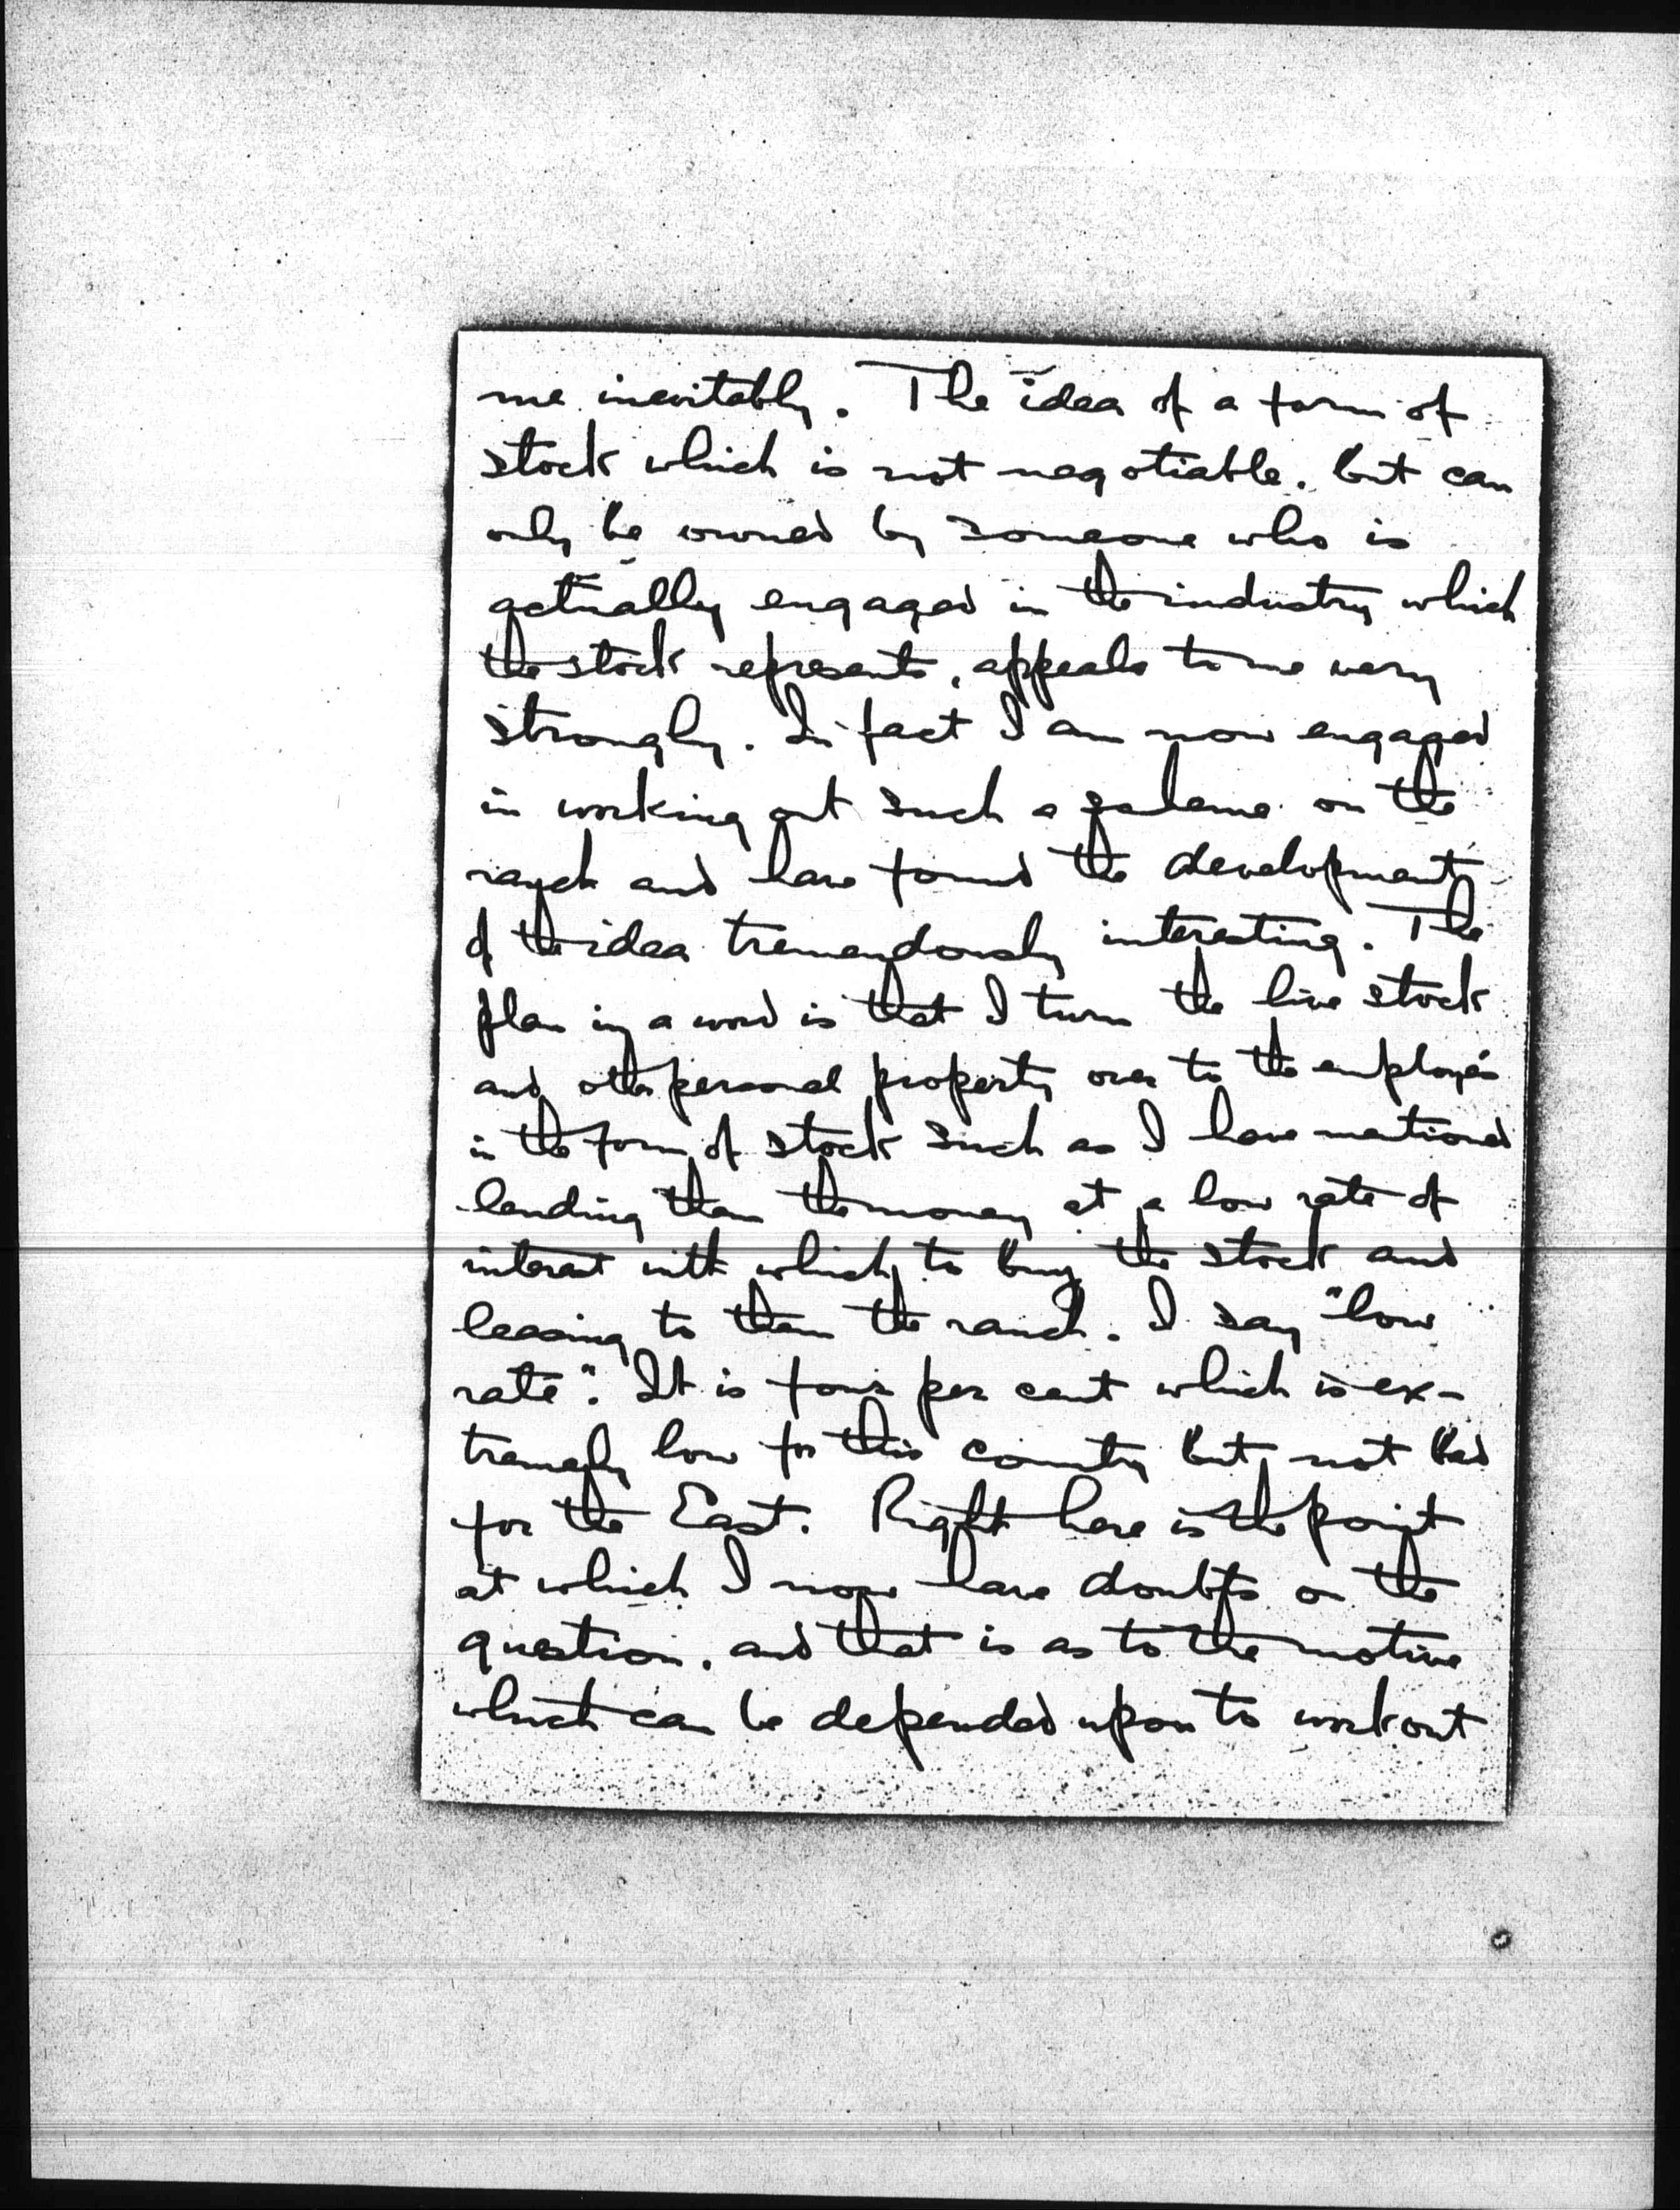 me inevitably. The idea of a form of
stock which is not negotiable, but can
only be owned by someone who is
actually engaged in the industry which
the stock represents, appeals to me very
strongly. In fact I am now engaged
in working out such a scheme on the
ranch and have found the development
of the idea tremendously interesting. The
plan in a word is that I turn the live stock
and other personal property over to the employés
in the form of stock such as I have mentioned
lending them the money at a low rate of
interest with which to buy the stock and
leasing to them the ranch. I say "low
rate". It is four per cent which is ex-
tremely low for this country but not bad
for the East. Right here is the point
at which I now have doubts on the
question, and that is as to the motive
which can be depended upon to work out